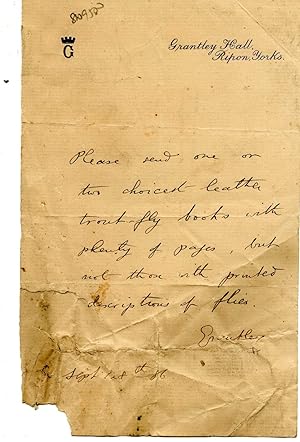 G
Grantley Hall,
Ripon, Yorks.
Please send one or
two choicest leather
trout fly books with
plenty of pages, but
not those with printed
descriptions of flies.
Grantley
Sept 28th 86